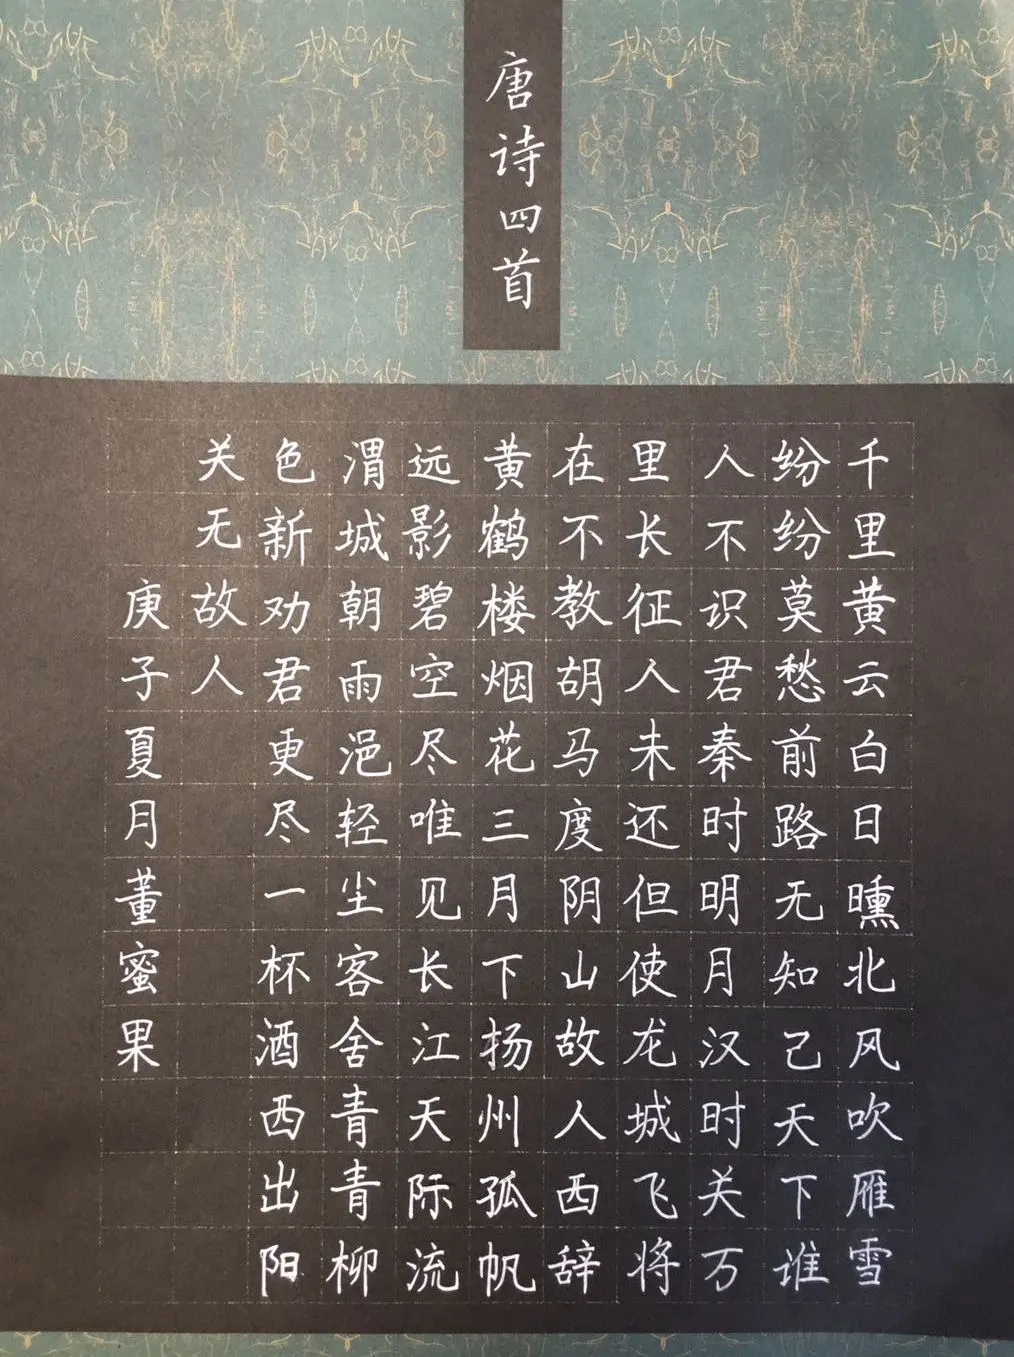 唐诗四首
千里黄云白日曛北风吹雁雪
纷纷莫愁前路无知己天下谁
人不识君秦时明月汉时关万
里长征人未还但使龙城飞将
在不教胡马度阴山故人西辞
黄鹤楼烟花三月下扬州孤帆
远影碧空尽唯见长江天际流
渭城朝雨浥轻尘客舍青青柳
色新劝君更尽一杯酒西出阳
关无故人
庚子夏月董蜜果